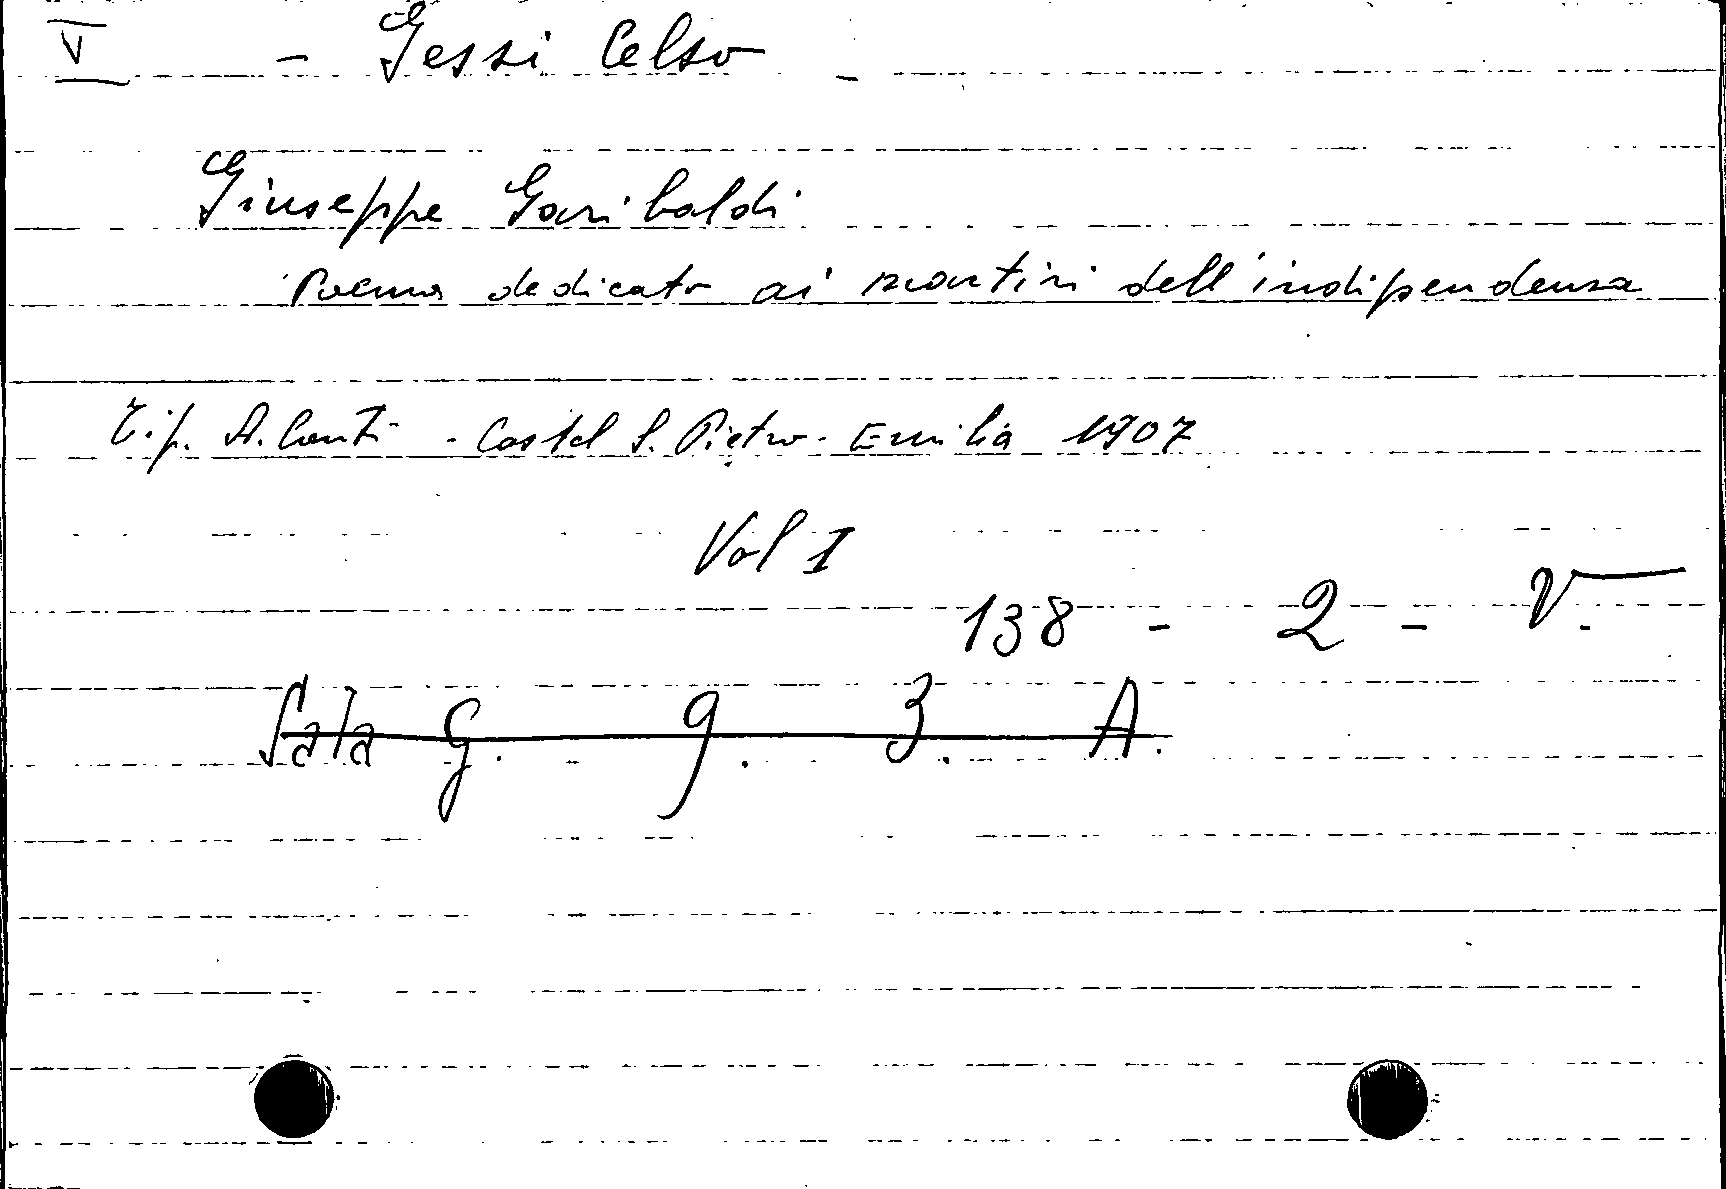 V - Gessi Celso -
Giuseppe Garibaldi
Poema dedicato ai martiri dell'indipendenza
Tip. A. Conti - Castel S. Pietro - Emilia 1907
Vol I
138 - 2 - V.
Sala G. 9. 3. A.